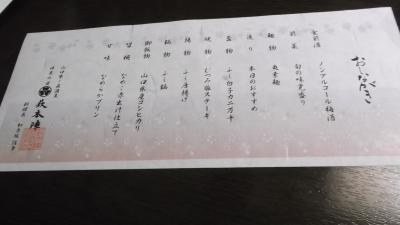 おしながき
食前酒 ノンアルコール梅酒
前菜 旬の味覚盛り
麺物 爽素麺
造り 本日のおすすめ
蓋物 ふく白子カニ万十
焼物 じつみ豚ステーキ
揚物 ふく唐揚げ
鍋物 ふく鍋
御飯物 山口県産コシヒカリ
留椀 なめこ赤出汁仕立て
甘味 なめらかプリン
山口県
萩本陣
料理長